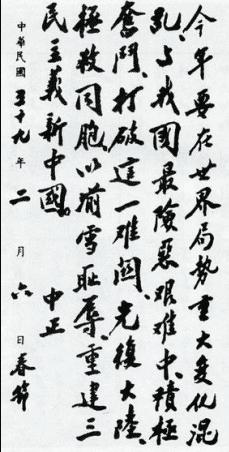 今年要在世界局勢重大变化混
乱、与我國最險惡艰难中、積極
奮鬥、打破這一难関、光復大陸、
拯救同胞、以湔雪耻辱、重建三
民主義新中國。 中正
中華民國五十九年二月六日春節